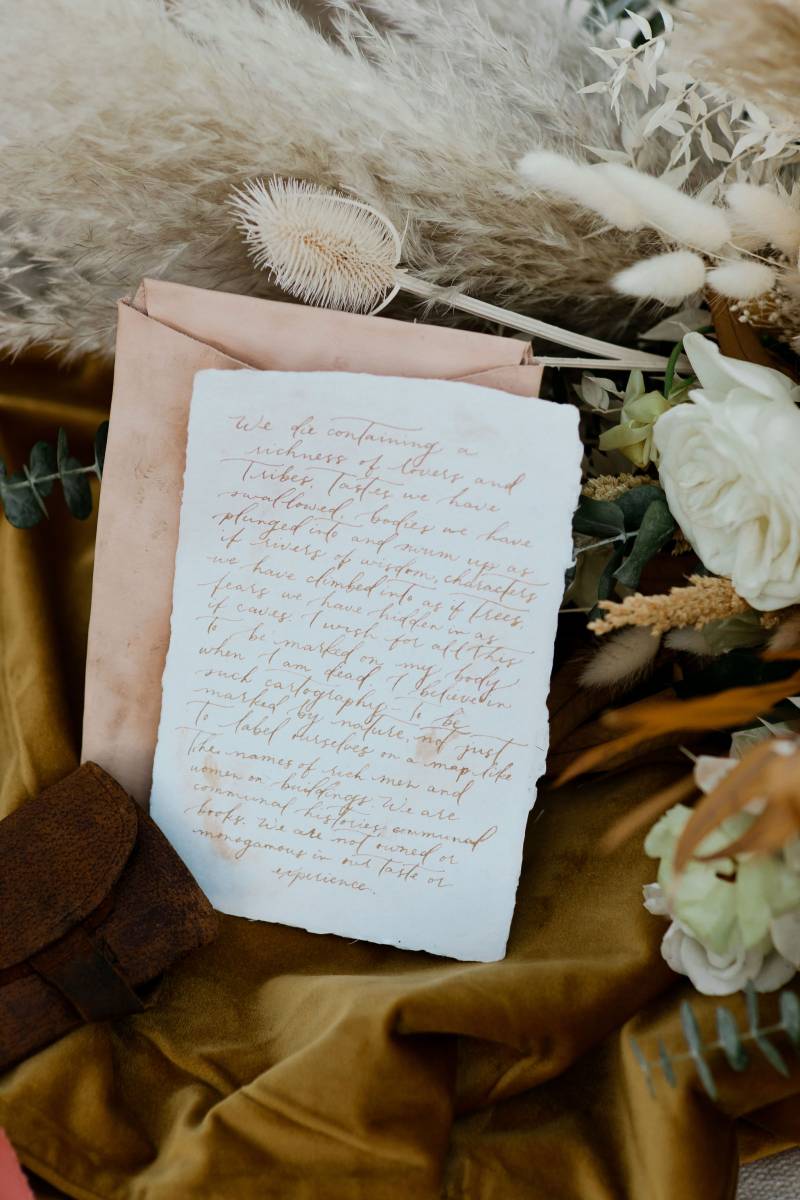 We die containing a
richness of lovers and
Tribes, Tastes we have
swallowed, bodies we have
plunged into and swum up as
if rivers of wisdom, characters
we have climbed into as if Trees,
fears we have hidden in as
if caves. I wish for all this
To be marked on my body
when I am dead. I believe in
such cartography - To be
marked by nature, not just
To label ourselves on a map like
The names of rich men and
women on buildings. We are
communal histories, communal
books. We are not owned or
monogamous in our taste or
experience.